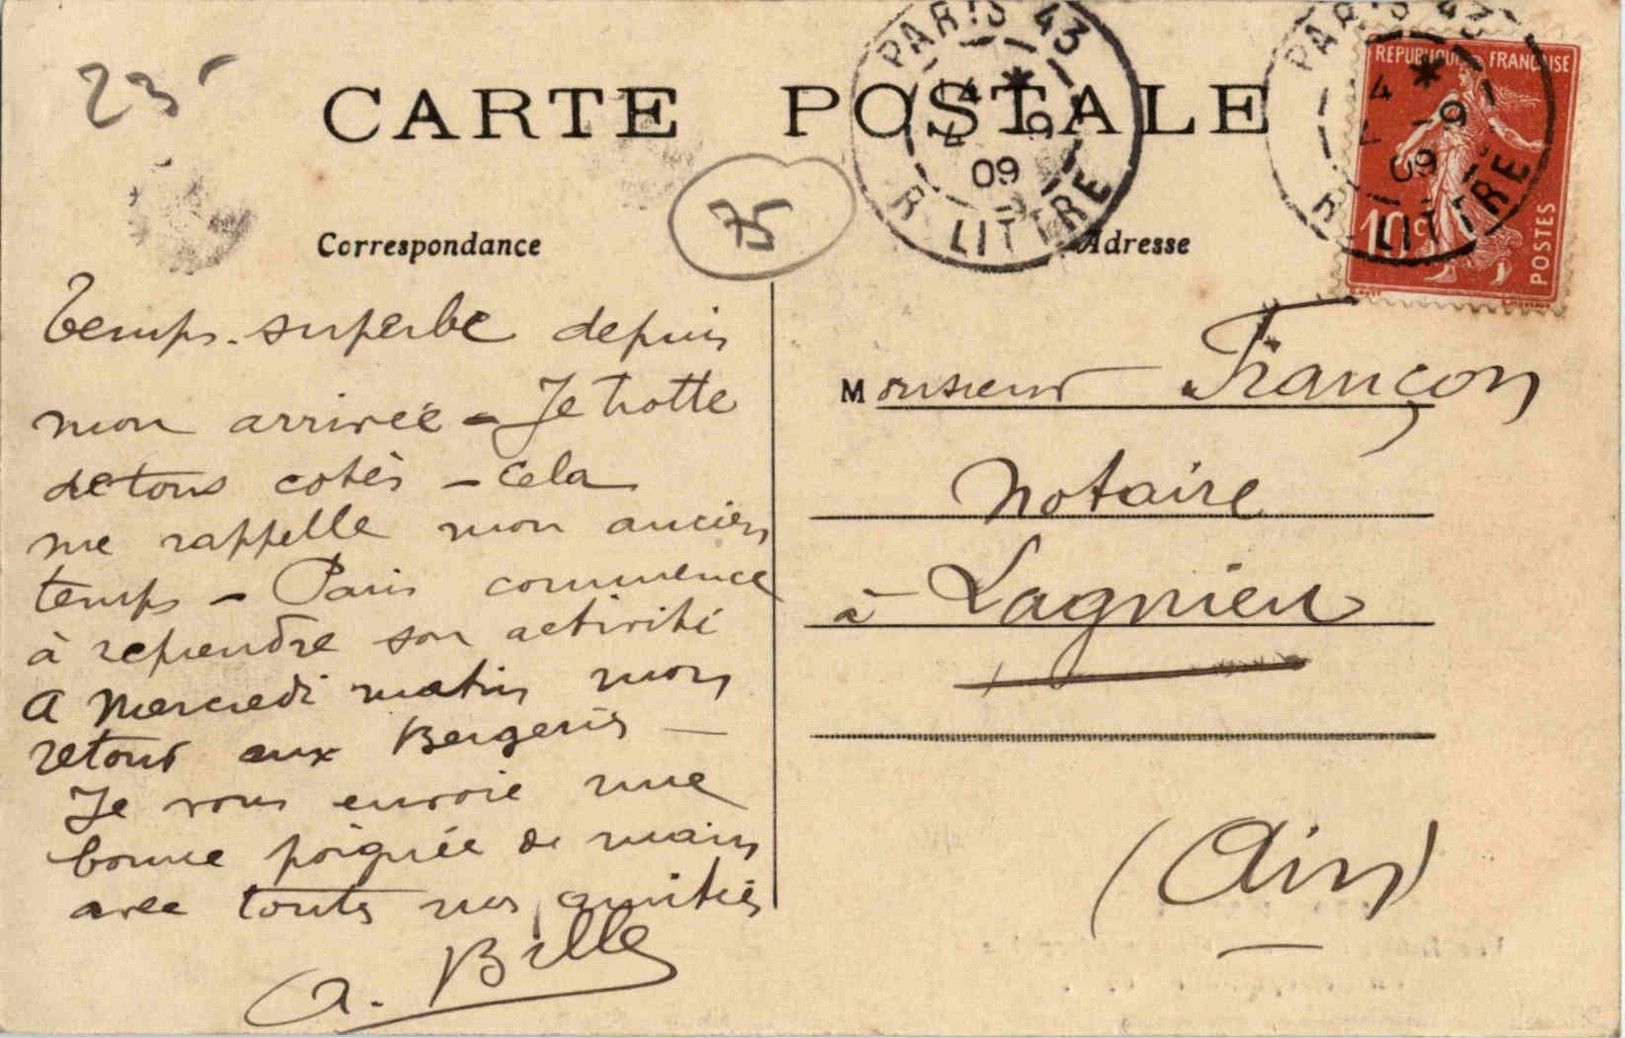 23
CARTE POSTALE
PARIS 43
4 *
4 -9
09
R. LITTRE
PARIS 43
4 *
4 -9
09
R. LITTRE
REPUBLIQUE FRANÇAISE
10 c
POSTES
75
Correspondance
Adresse
Temps superbe depuis
mon arrivée - Je trotte
de tous cotés - Cela
me rappelle mon ancien
temps - Paris commence
à reprendre son activité
A Mercredi matin mon
retour aux Bergeries -
Je vous envoie une
bonne poignée de main
avec toutes mes amitiés
A. Bille
Monsieur Françon
Notaire
à Lagnieu
(Ain)